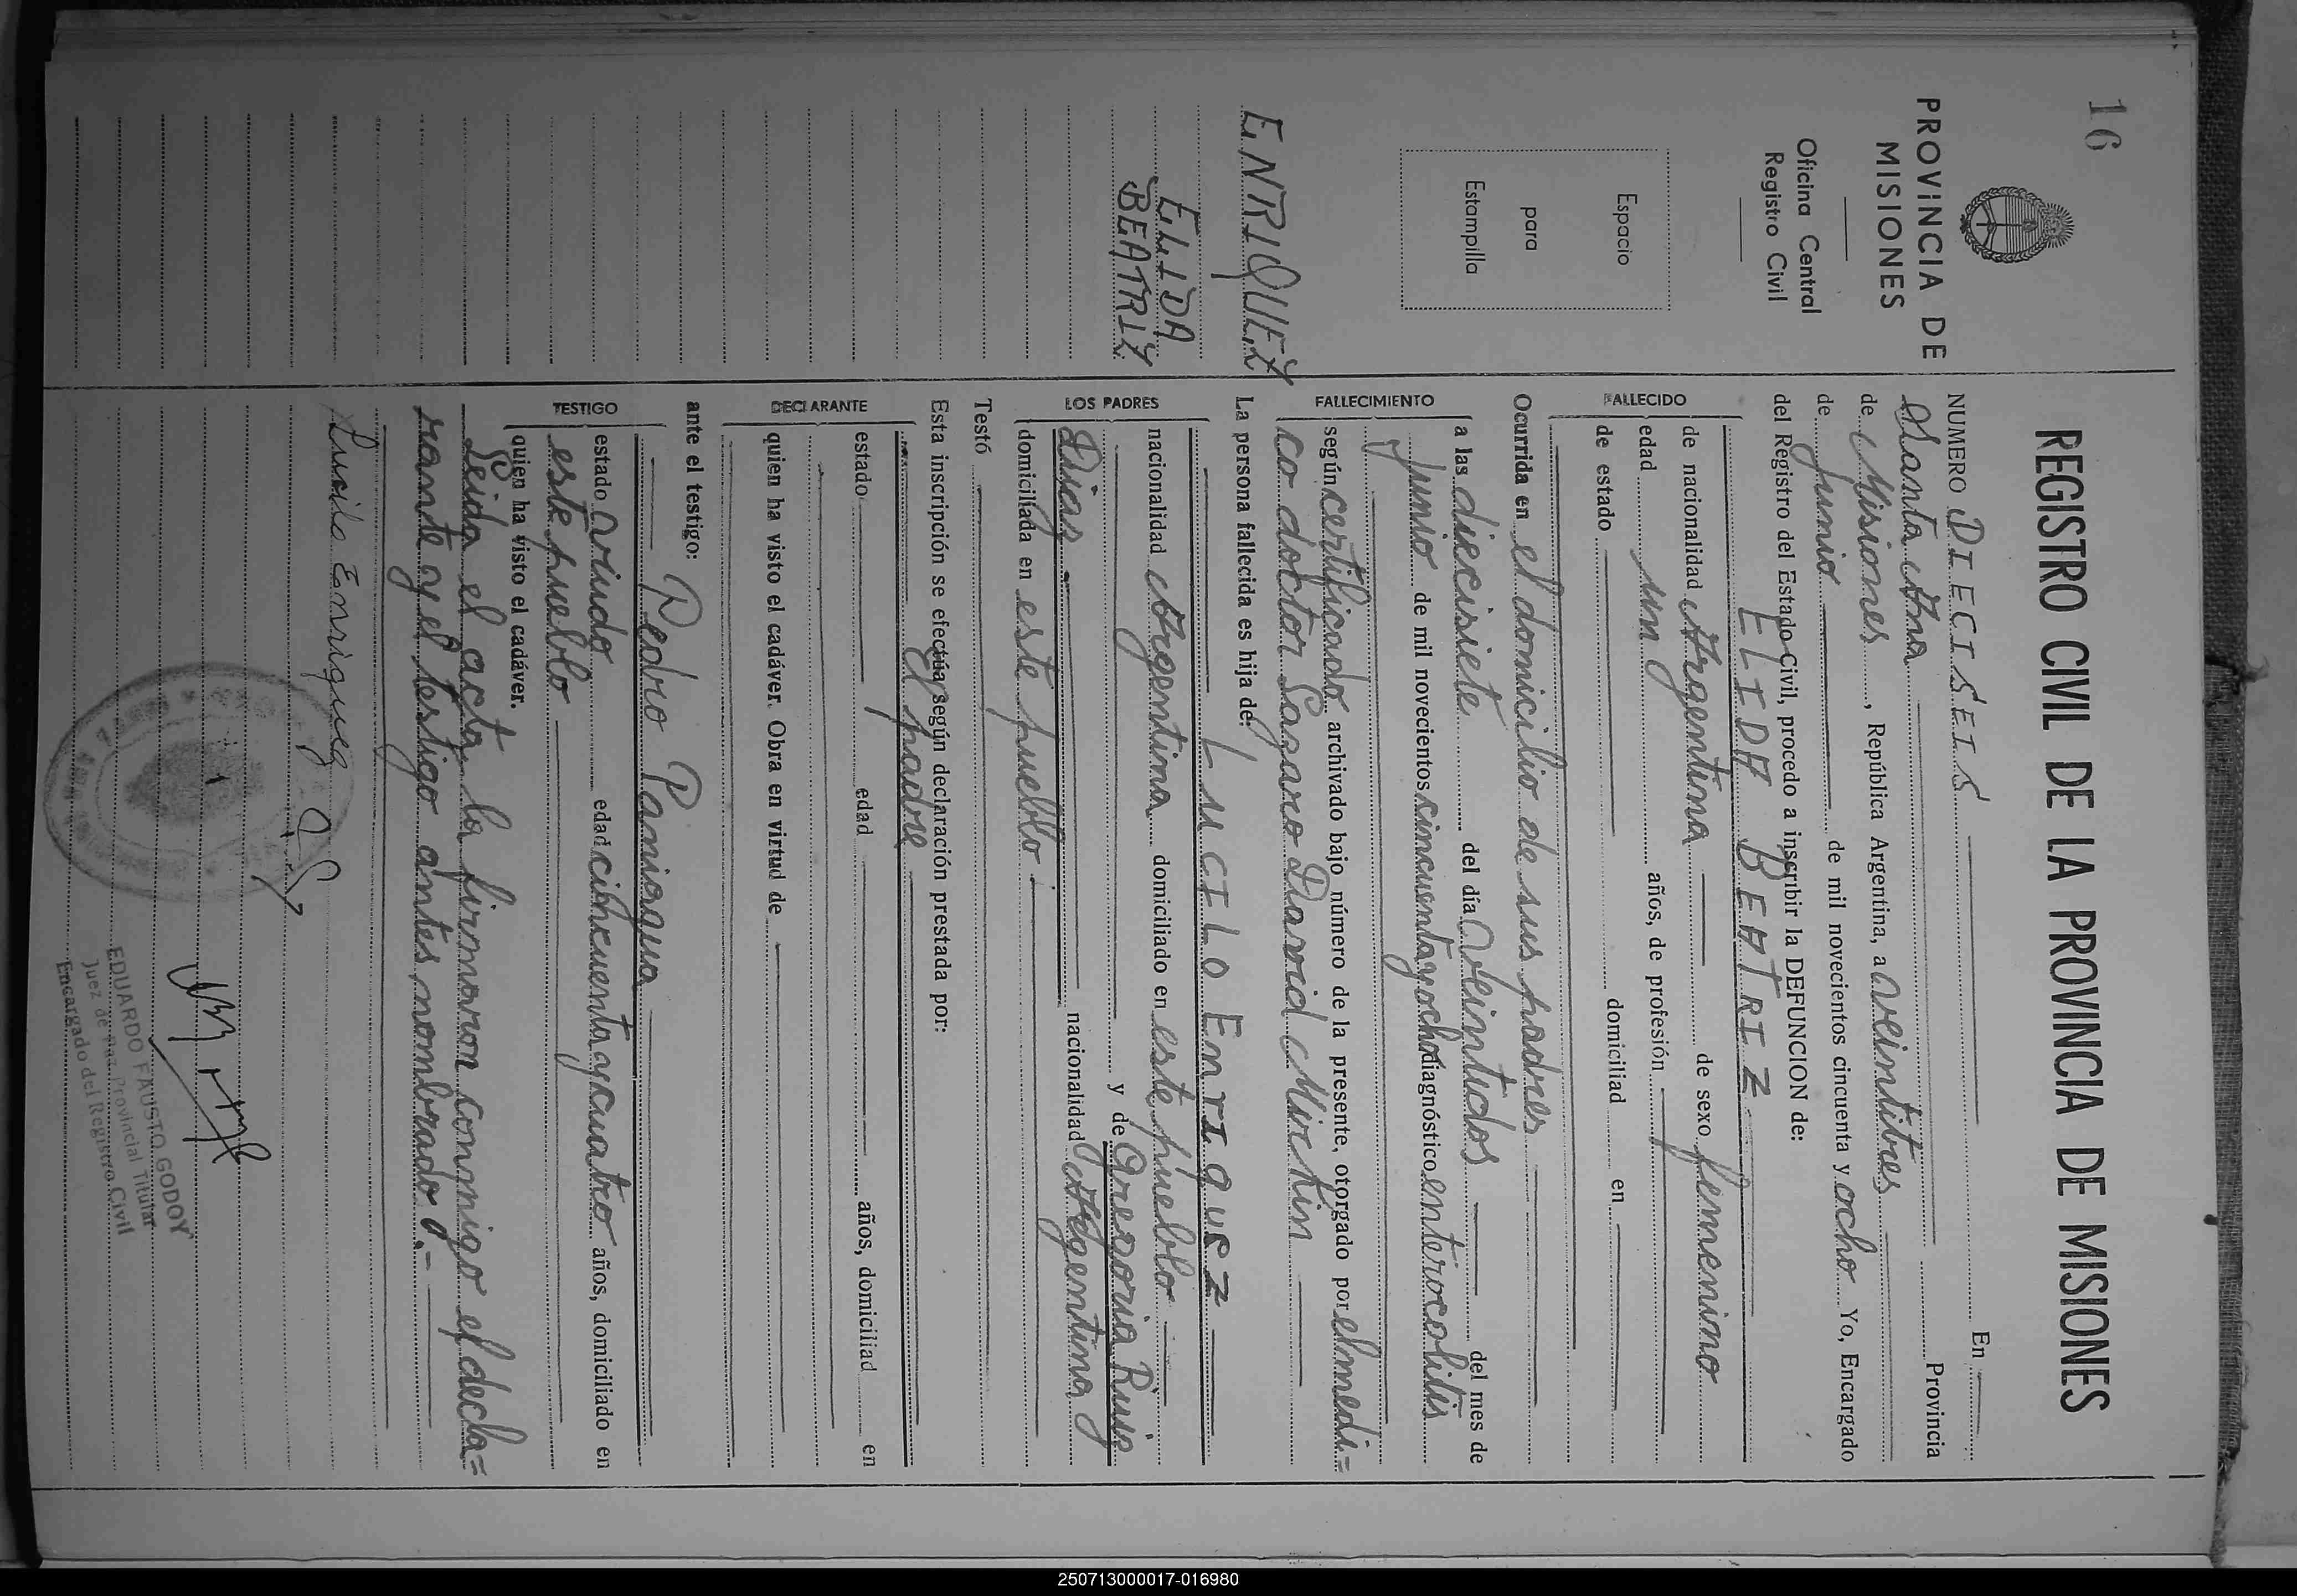 16
PROVINCIA DE
MISIONES
Oficina Central
Registro Civil
Espacio
para
Estampilla
ENRIQUEZ
ELIDA
BEATRIZ
REGISTRO CIVIL DE LA PROVINCIA DE MISIONES
NUMERO DIECISEIS En
Santa Ana Provincia
de Misiones, República Argentina, a veintitres
de Junio de mil novecientos cincuenta y ocho Yo, Encargado
del Registro del Estado Civil, procedo a inscribir la DEFUNCION de:
ELIDA BEATRIZ
FALLECIDO
de nacionalidad Argentina de sexo femenino
edad un años, de profesión
de estado domiciliad en
Ocurrida en el domicilio de sus padres
FALLECIMIENTO
a las diecisiete del día veintidos del mes de
Junio de mil novecientos cincuenta y ocho diagnóstico enterocolitis
según certificado archivado bajo número de la presente, otorgado por el medi=
co doctor Lazaro David
La persona fallecida es hija de:
LUCILO EnrIquez
LOS PADRES
nacionalidad Argentina domiciliado en este pueblo
y de Gregoria Ruiz
Dias nacionalidad Argentina
domiciliada en este pueblo
Testó
Esta inscripción se efectúa según declaración prestada por:
El padre
DECLARANTE
estado edad años, domiciliad en
quien ha visto el cadáver. Obra en virtud de
ante el testigo:
Pedro Paniagua
TESTIGO
estado viudo edad cincuenta y cuatro años, domiciliado en
este pueblo
quien ha visto el cadáver.
Leida el acta, la firmaron conmigo el decla=
rante y el testigo antes nombrado.-
Lucilo Enriquez
EDUARDO FAUSTO GODOY
Juez de Paz Provincial Titular
Encargado del Registro Civil
250713000017-016980